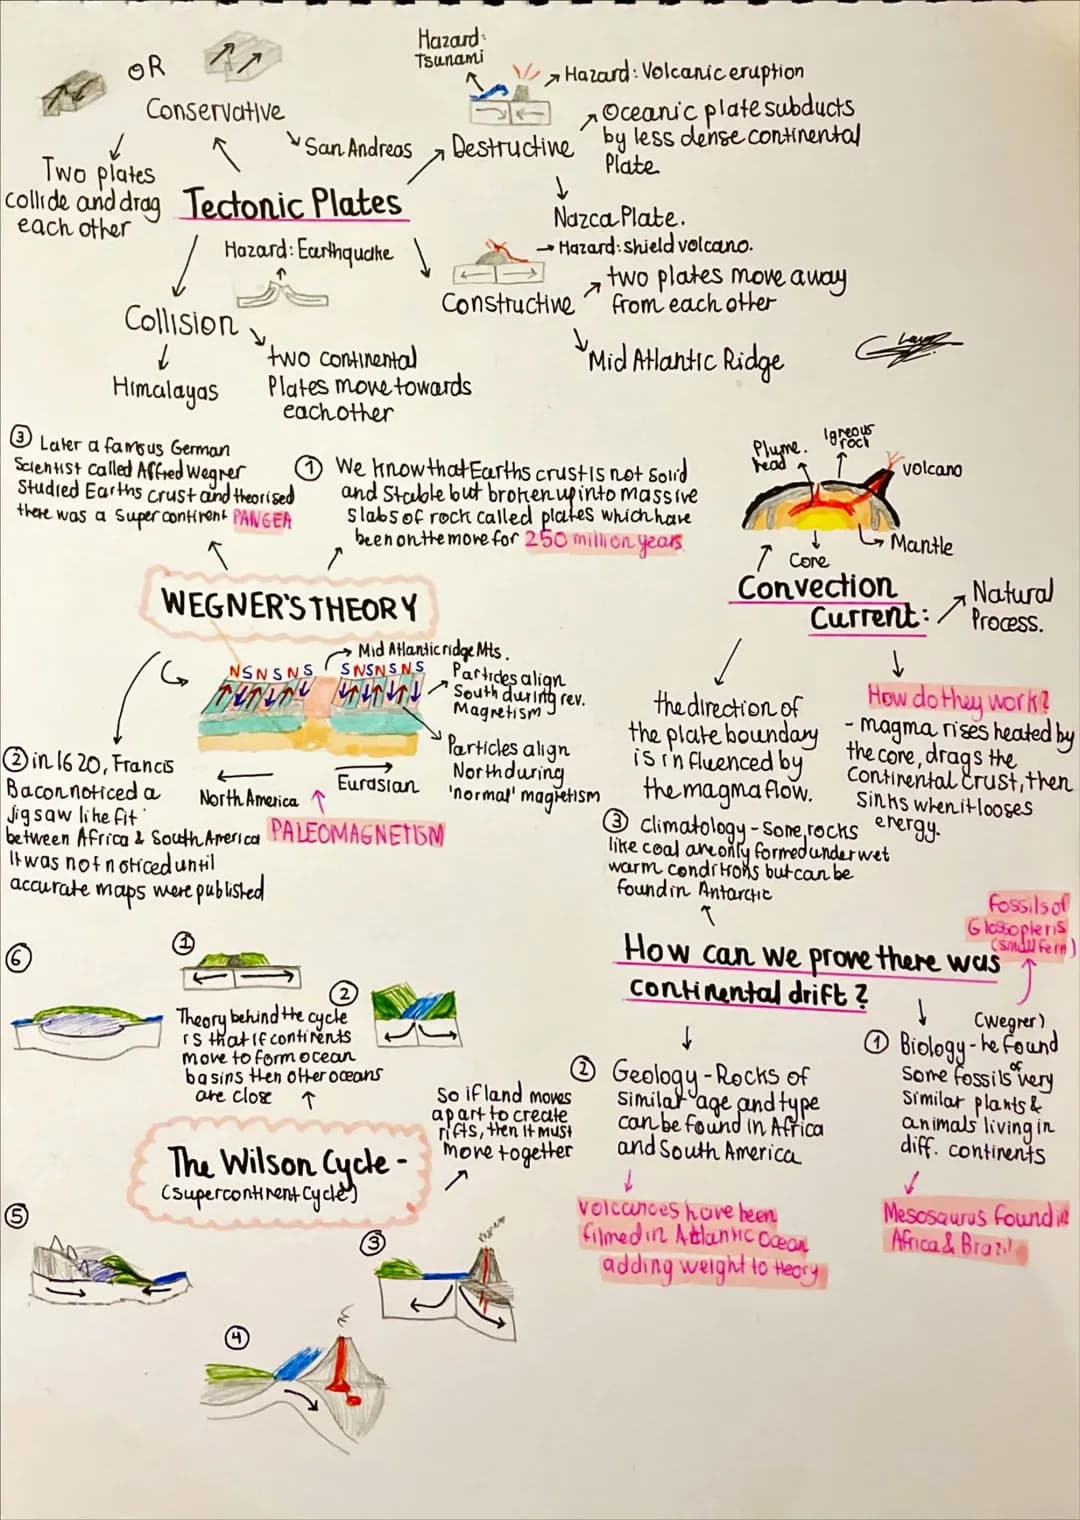 OR
Conservative
Two plates
collide and drag
each other
San Andreas
Tectonic Plates
Hazard:
Tsunami
Hazard: Volcanic eruption
Destructive
Oceanic plate subducts
by less dense continental
Plate
Nazca Plate.
Hazard: shield volcano.
Constructive
two plates move away
from each other
Mid Atlantic Ridge
Hazard: Earthquake
Collision
Himalayas
two continental
Plates move towards
each other
③ Later a famous German
Scientist called Alfred Wegner
Studied Earths crust and theorised
there was a Super continent PANGEA
① We know that Earths crust is not solid
and stable but broken up into massive
slabs of rock called plates which have
been on the move for 250 million years
WEGNER'S THEORY
N S N S N S
S N S N S N S
Mid Atlantic ridge Mts.
Particles align
South during rev.
Magnetism
Particles align
North during
'normal' magnetism
North America
Eurasian
PALEOMAGNETISM
② in 1620, Francis
Bacon noticed a
jigsaw like fit
between Africa & South America
It was not noticed until
accurate maps were published
Plume.
head
Igneous
rock
volcano
Mantle
Core
Convection
Current:
Natural
Process.
the direction of
the plate boundary
is influenced by
the magma flow.
How do they work?
- magma rises heated by
the core, drags the
Continental Crust, then
sinks when it looses
energy.
③ Climatology - Some rocks
like coal are only formed under wet
warm conditions but can be
found in Antarctic
How can we prove there was
continental drift?
fossils of
Glossopteris
(small fern)
(Wegner)
① Biology - he found
some fossils of very
similar plants &
animals living in
diff. continents
Mesosaurus found in
Africa & Brazil
② Geology - Rocks of
similar age and type
can be found in Africa
and South America
volcances have been
filmed in Atlantic Ocean
adding weight to theory
①
Theory behind the cycle
is that if continents
move to form ocean
basins then other oceans
are close
②
So if land moves
apart to create
rifts, then it must
move together
The Wilson Cycle -
(supercontinent Cycle)
③
④
⑤
⑥